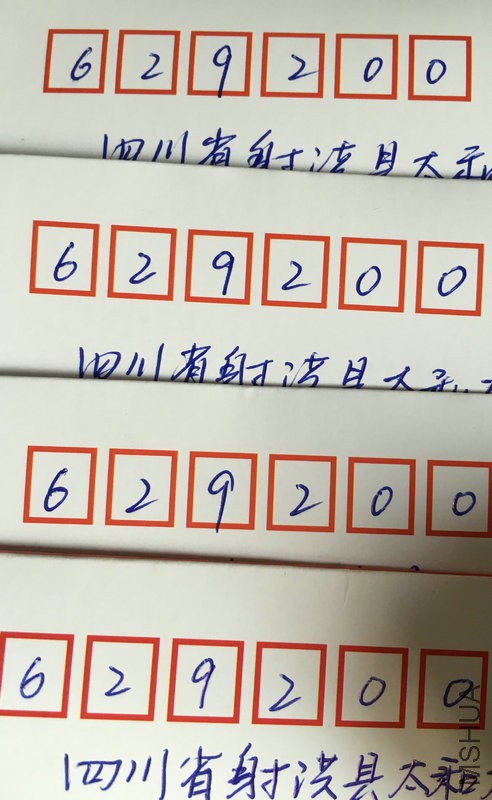 629200
四川省射洪县太和
629200
四川省射洪县太和
629200
629200
四川省射洪县太和